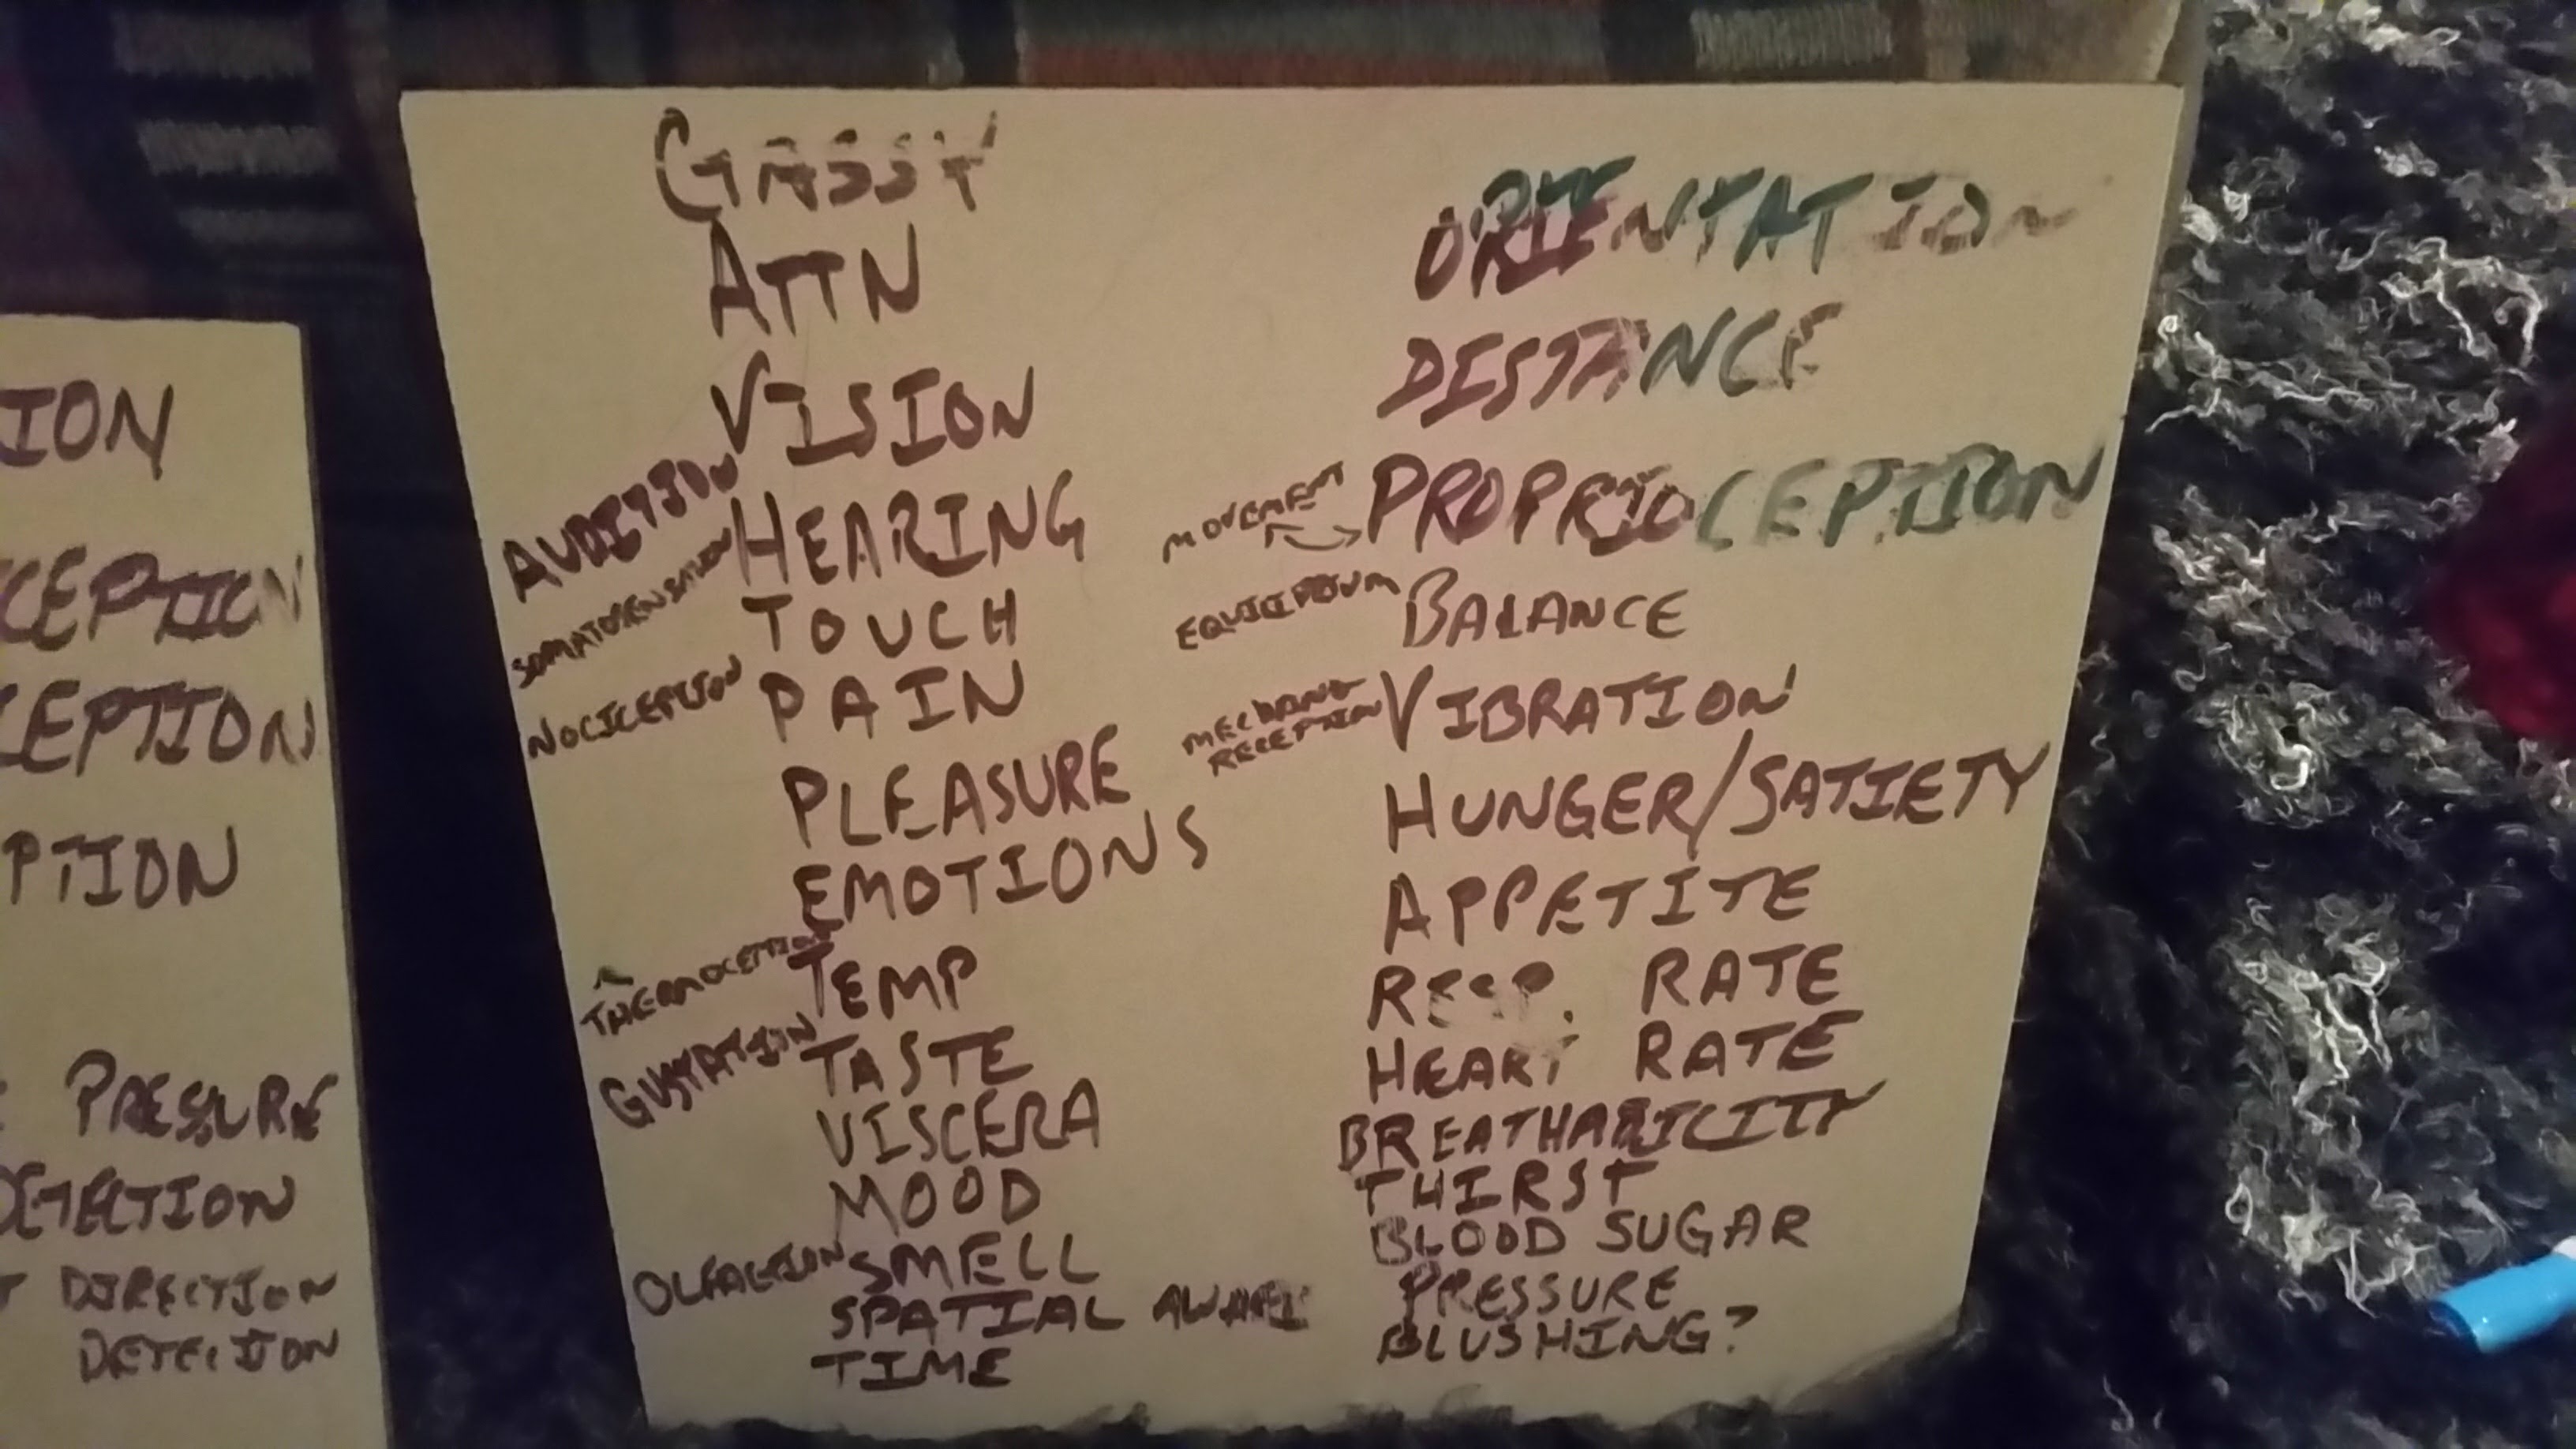 ION
CEPTION
CEPTION
PTION
PRESSURE
DETECTION
T DIRECTION
DETECTION
GASSY
ATTN
VISION
AUDITION HEARING
SOMATOSENSATION TOUCH
NOCICEPTION PAIN
PLEASURE
EMOTIONS
THERMOCEPTION TEMP
GUSTATION TASTE
VISCERA
MOOD
OLFACTION SMELL
SPATIAL
TIME
ORIENTATION
DISTANCE
MOVEMENT PROPRIOCEPTION
EQUILIBRIUM BALANCE
MECHANO
RECEPTION VIBRATION
HUNGER/SATIETY
APPETITE
RESP. RATE
HEART RATE
BREATHABILITY
THIRST
BLOOD SUGAR
PRESSURE
BLUSHING?